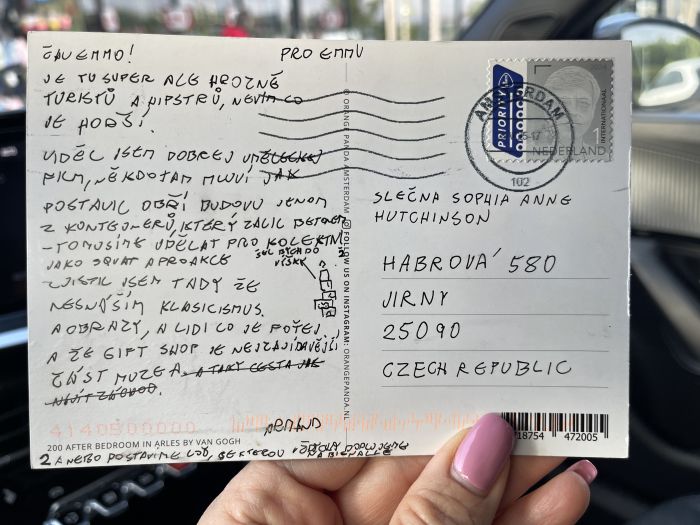 ČAU EMMO!
PRO EMMU
JE TU SUPER ALE HROZNĚ
TURISTŮ A HIPSTRŮ, NEVÍM CO
JE HORŠÍ.
VIDĚL JSEM DOBREJ UMĚLECKEJ
FILM, NĚKDO TAM MLUVÍ JAK
POSTAVIL OBŘÍ BUDOVU JENOM
Z KONTEJNERŮ, KTERÝ ZALIL BETONEM
- TO MUSÍME UDĚLAT PRO KOLEKTIV
JAKO SQUAT A PROAKCE
ŠEL BYCH DO
VÝŠKY
- ZJISTIL JSEM TADY ŽE
NESNÁŠÍM KLASICISMUS.
A OBRAZY, A LIDI CO JE FOTEJ
A ŽE GIFT SHOP JE NEJZAJÍMAVĚJŠÍ
ČÁST MUZEA. A TAKY CESTA JAK
NAJÍT ZÁCHOD.
4140500000
200 AFTER BEDROOM IN ARLES BY VAN GOGH
2 A NEBO POSTAVÍME LOĎ, SE KTEROU
© ORANGE PANDA AMSTERDAM FOLLOW US ON INSTAGRAM: ORANGEPANDA.NL
PRIORITY
1
INTERNATIONAAL
NEDERLAND
AMSTERDAM
102
SLEČNA SOPHIA ANNE
HUTCHINSON
HABROVÁ 580
JIRNY
25090
CZECH REPUBLIC
18754 472005